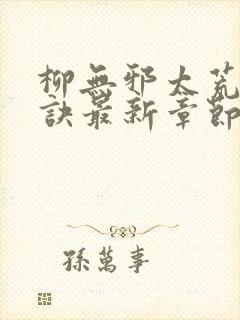 柳無邪太荒
訣最新章節
孫萬事